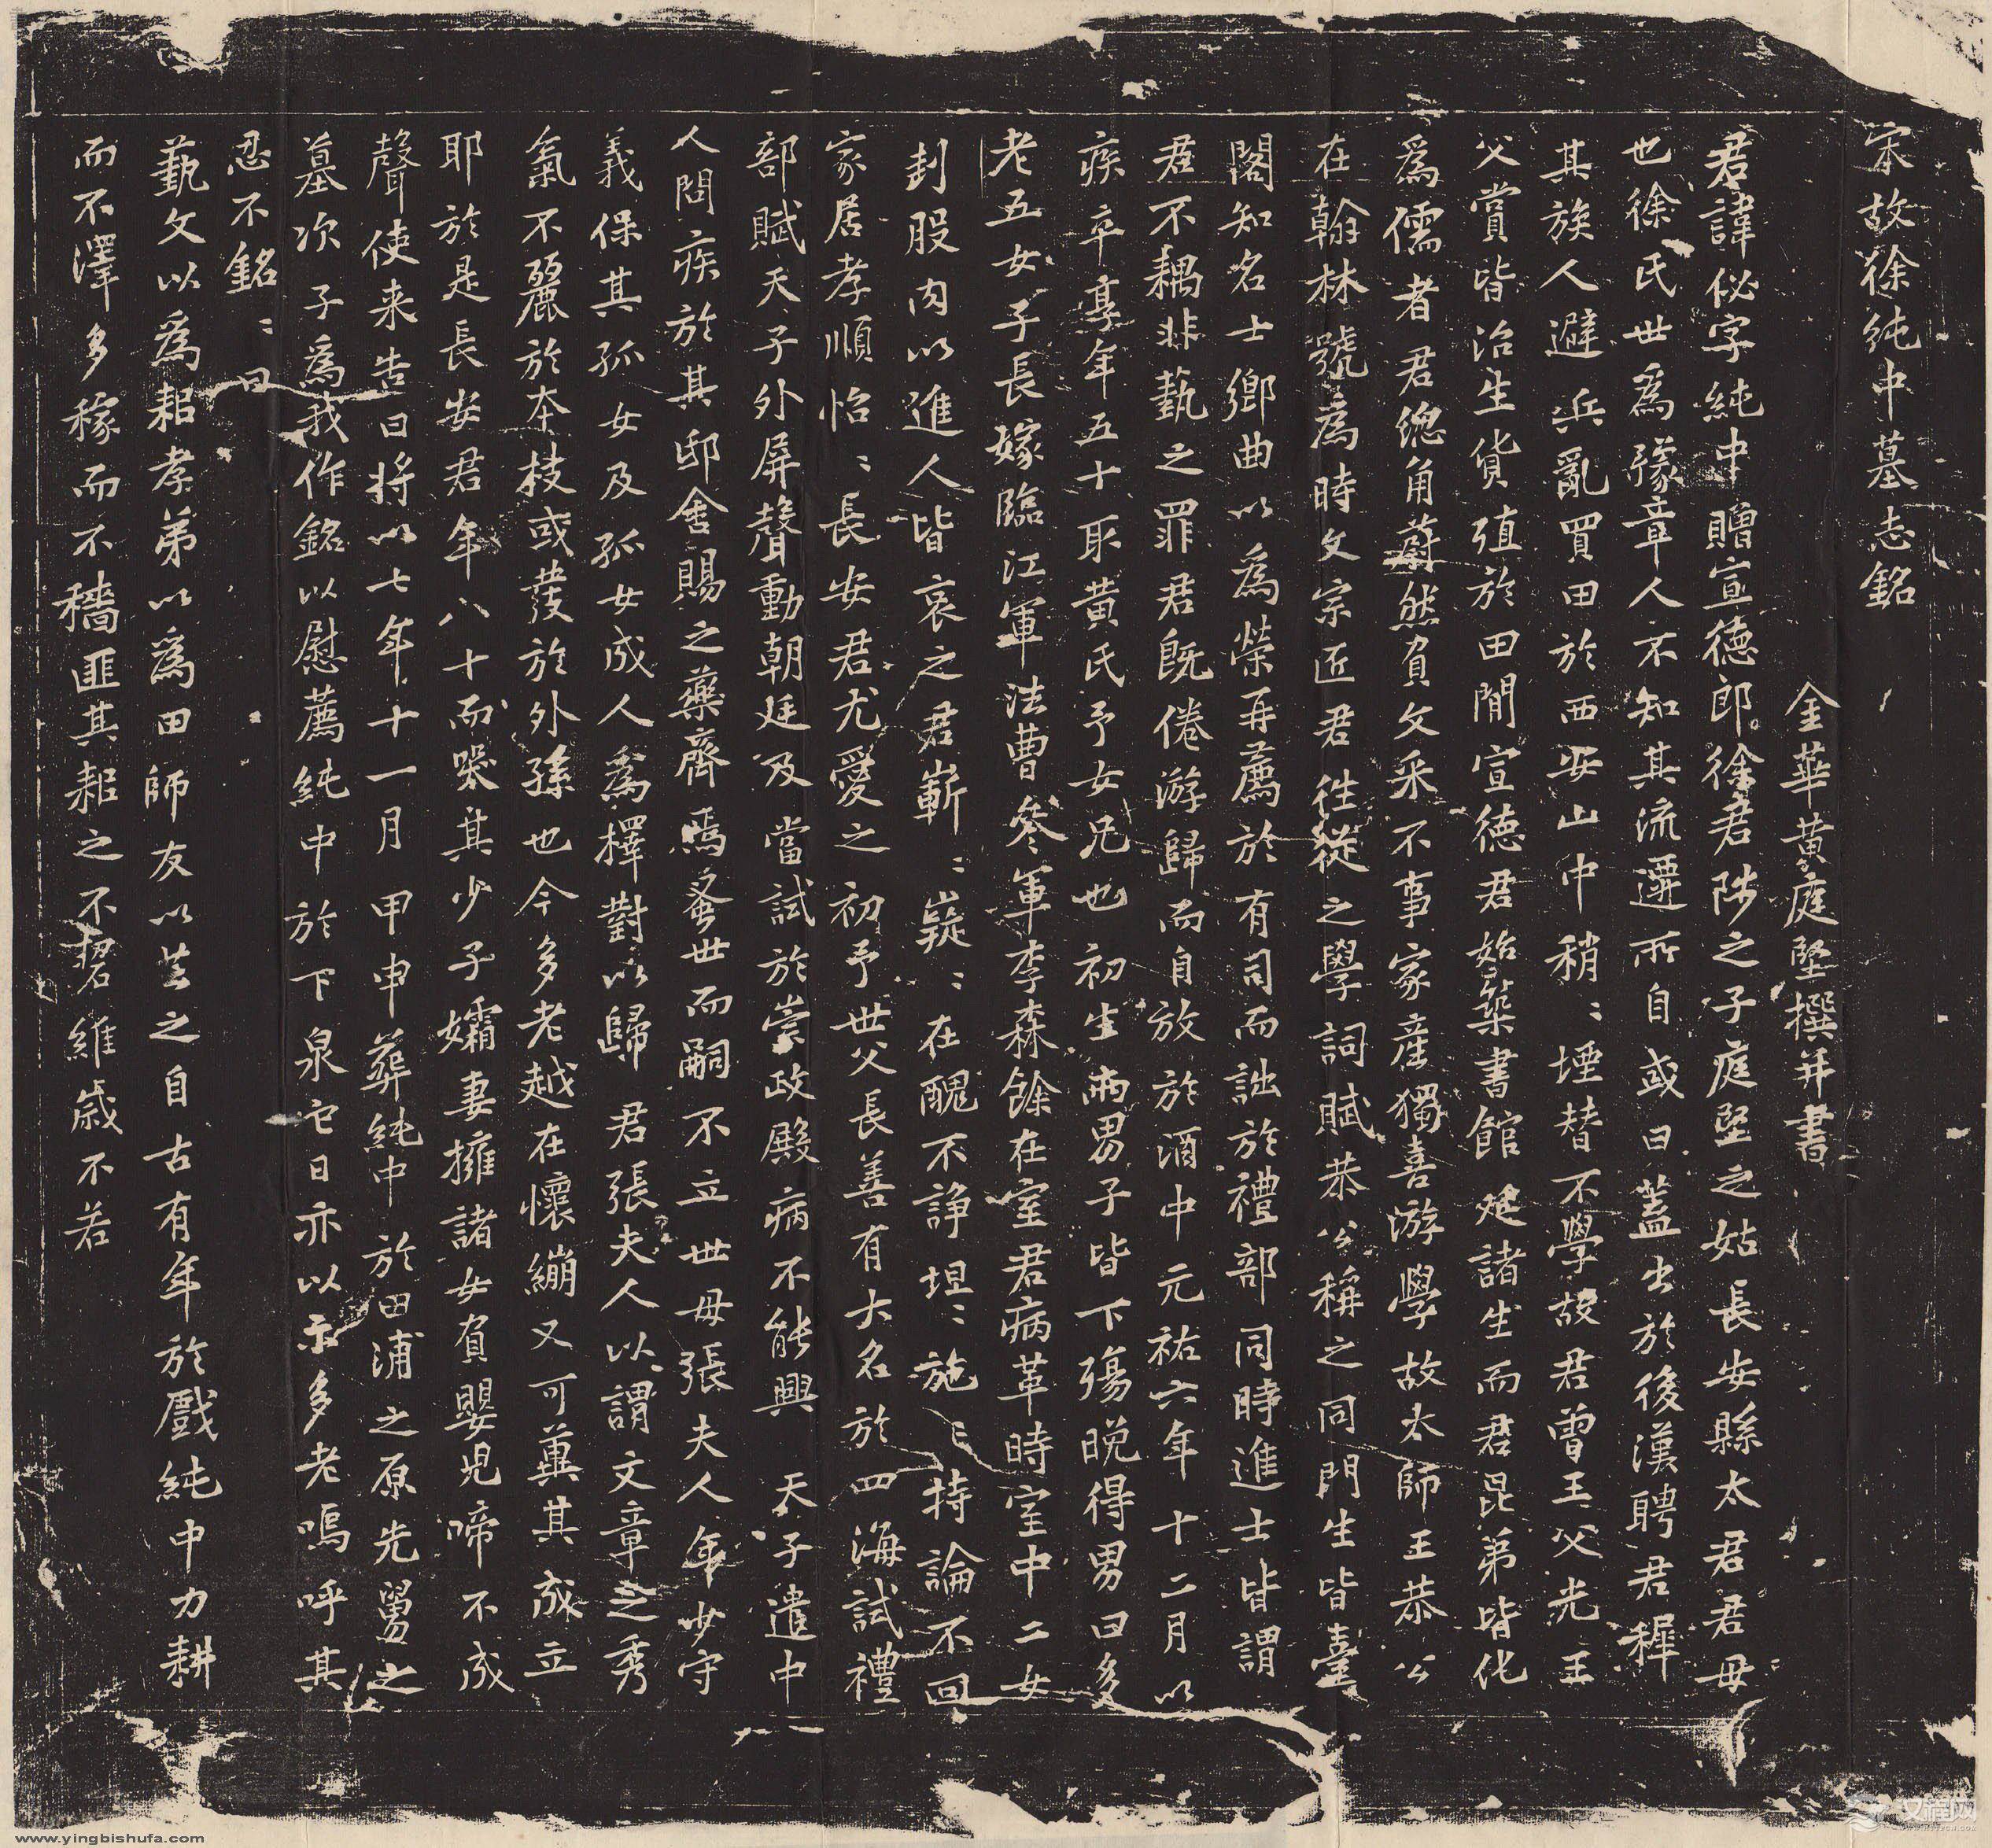 宋故徐純中墓志銘
金華黃庭堅撰并書
君諱佖字純中贈宣德郎徐君陟之子庭堅之姑長安縣太君君母
也徐氏世為豫章人不知其流遷所自或曰蓋出於後漢聘君穉
其族人避兵亂買田於西安山中稍〻堙替不學故君曾王父先王
父賞皆治生貨殖於田閒宣德君始築書館延諸生而君昆弟皆化
為儒者君總角蔚然負文采不事家產獨喜游學故太師王恭公
在翰林號為時文宗匠君徃從之學詞賦恭公稱之同門生皆臺
閣知名士鄉曲以為榮再薦於有司而詘於禮部同時進士皆謂
君不耦非藝之罪君既倦游歸而自放於酒中元祐六年十二月以
疾卒享年五十耴黃氏予女兄也初生兩男子皆下殤晚得男曰多
老五女子長嫁臨江軍法曹參軍李森餘在室君病革時室中二女
刲股肉以進人皆哀之君嶄〻嶷〻在醜不諍坦〻施〻持論不回
家居孝順怡〻長安君尤愛之初予世父長善有大名於四海試禮
部賦天子外屏聲動朝廷及當試於崇政殿病不能興天子遣中
人問疾於其邸舍賜之藥齊焉蚤世而嗣不立世母張夫人年少守
義保其孤女及孤女成人為擇對以歸君張夫人以謂文章之秀
氣不麗於本枝或發於外孫也今多老越在懷繃又可冀其成立
耶於是長安君年八十而哭其少子孀妻擁諸女負嬰兒啼不成
聲使来告曰将以七年十一月甲申葬純中於田浦之原先舅之
墓次子為我作銘以慰薦純中於下泉它日亦以示多老嗚呼其
忍不銘〻曰
藝文以為耜孝弟以為田師友以芸之自古有年於戲純中力耕
而不澤多稼而不穡匪其耜之不碧維歲不若
www.yingbishufa.com